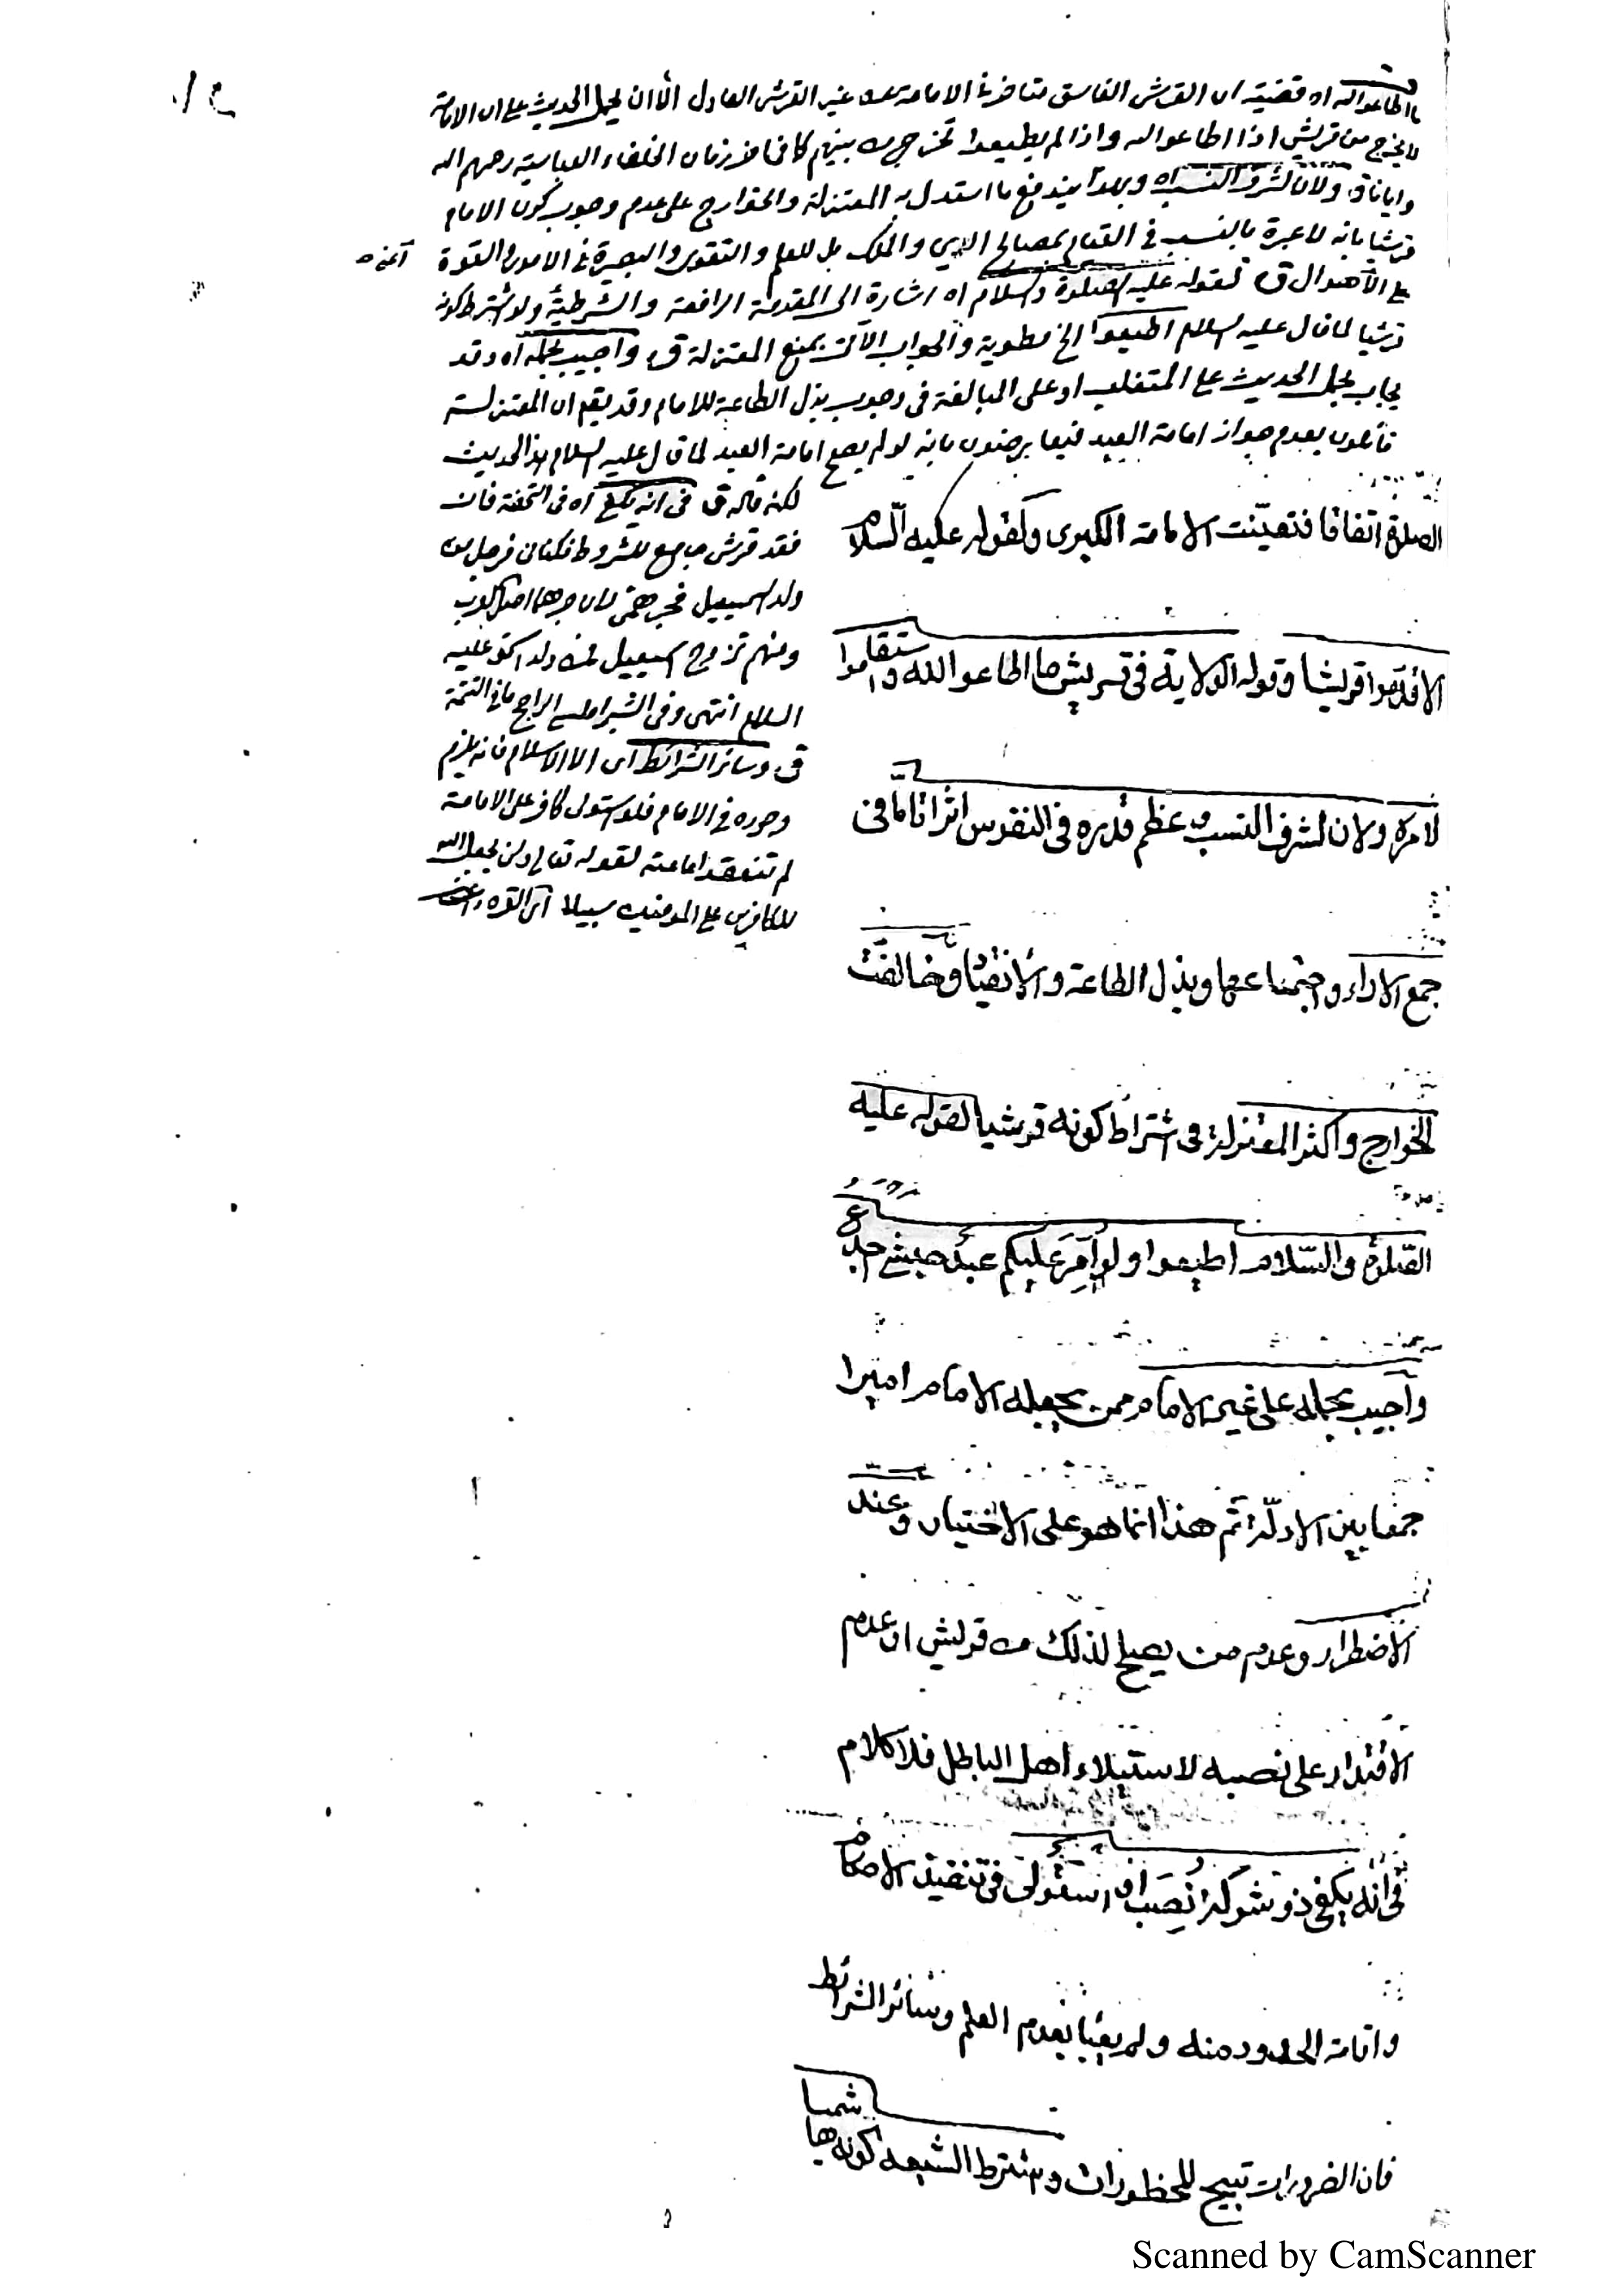 ما اطاعوا اله اه قضيته ان القرشى الفاسق متاخر فى الامامة عن غير القرشى العادل الا ان يحمل الحديث على ان الامامة
لا يخرج من قريش اذا اطاعوا اله واذا لم يطيعوا تخرج من بينهم كما فى زمان الخلفاء العباسية رحمهم اله
وايانا ق ولان لشرف النسب اه وبهذا يندفع ما استدل به المعتزلة والخوارج على عدم وجوب كون الامام
قرشيا بانه لا عبرة بالنسب فى القيام بمصالح الدين والملك بل للعلم والتقوى والبصيرة فى الامور والقوة
على الاهوال ق لقوله عليه الصلوة والسلام اه اشارة الى المقدمة الرافعة والشرطية ولو اشترط كونه
قرشيا لما قال عليه السلام اطيعوا الخ مطوية والجواب الآتى بمنع المعتزلة ق واجيب بحمله اه وقد
يجاب بحمل الحديث على المتغلب او على المبالغة فى وجوب بذل الطاعة للامام وقد يقع ان المعتزلة
قائلون بعدم جواز امامة العبد فيعارضون بانه لو لم يصح امامة العبد لما قال عليه السلام هذا الحديث
لكنه قاله ق فى انه يكفى اه فى التحفة فان
فقد قرشى جامع للشروط فكنانى فرجل من
ولد اسمعيل فجرهمى لان جرهما اصل العرب
ومنهم تزوج اسمعيل فمن ولد اسحق عليه
السلام انتهى وفى الشبراملسى الراجح ما فى التتمة
ق وسائر الشرائط اى الا الاسلام فانه يلزم
وجوده فى الامام فلو استولى كافر على الامامة
لم تنعقد امامته لقوله تعالى ولن يجعل الله
للكافرين على المؤمنين سبيلا
الصلوة اتفاقا فتعيّنت الامامة الكبرى وكقوله عليه السّلام
الا قدّموا قريشا وقوله الولاية فى قريش ما اطاعوا الله واستقاموا
لامره ولان لشرف النسب وعظم قدره فى النفوس اثرا تاما فى
جمع الاراء واجتماعها وبذل الطاعة والانقياد وخالفت
الخوارج واكثر المعتزلة فى اشتراط كونه قرشيا لقوله عليه
الصّلوة والسّلام اطيعوا ولو اُمِّرَ عليكم عبد حبشى اجدع
واجيب بحمله على غير الامام ممن يجعله الامام اميرا
جمعا بين الادلّة ثم هذا انما هو على الاختيار وعند
الاضطرار وعدم من يصلح لذلك من قريش او عدم
الاقتدار على نصبه لاستيلاء اهل الباطل فلا كلام
فى انه يكفى ذو شوكة نُصِبَ او استولى فى تنفيذ الاحكام
واقامة الحدود منه ولم يعبأ بعدم العلم وسائر الشرائط
فان الضرورات تبيح المحظورات واشترط الشيعه كونه هاشميا
Scanned by CamScanner